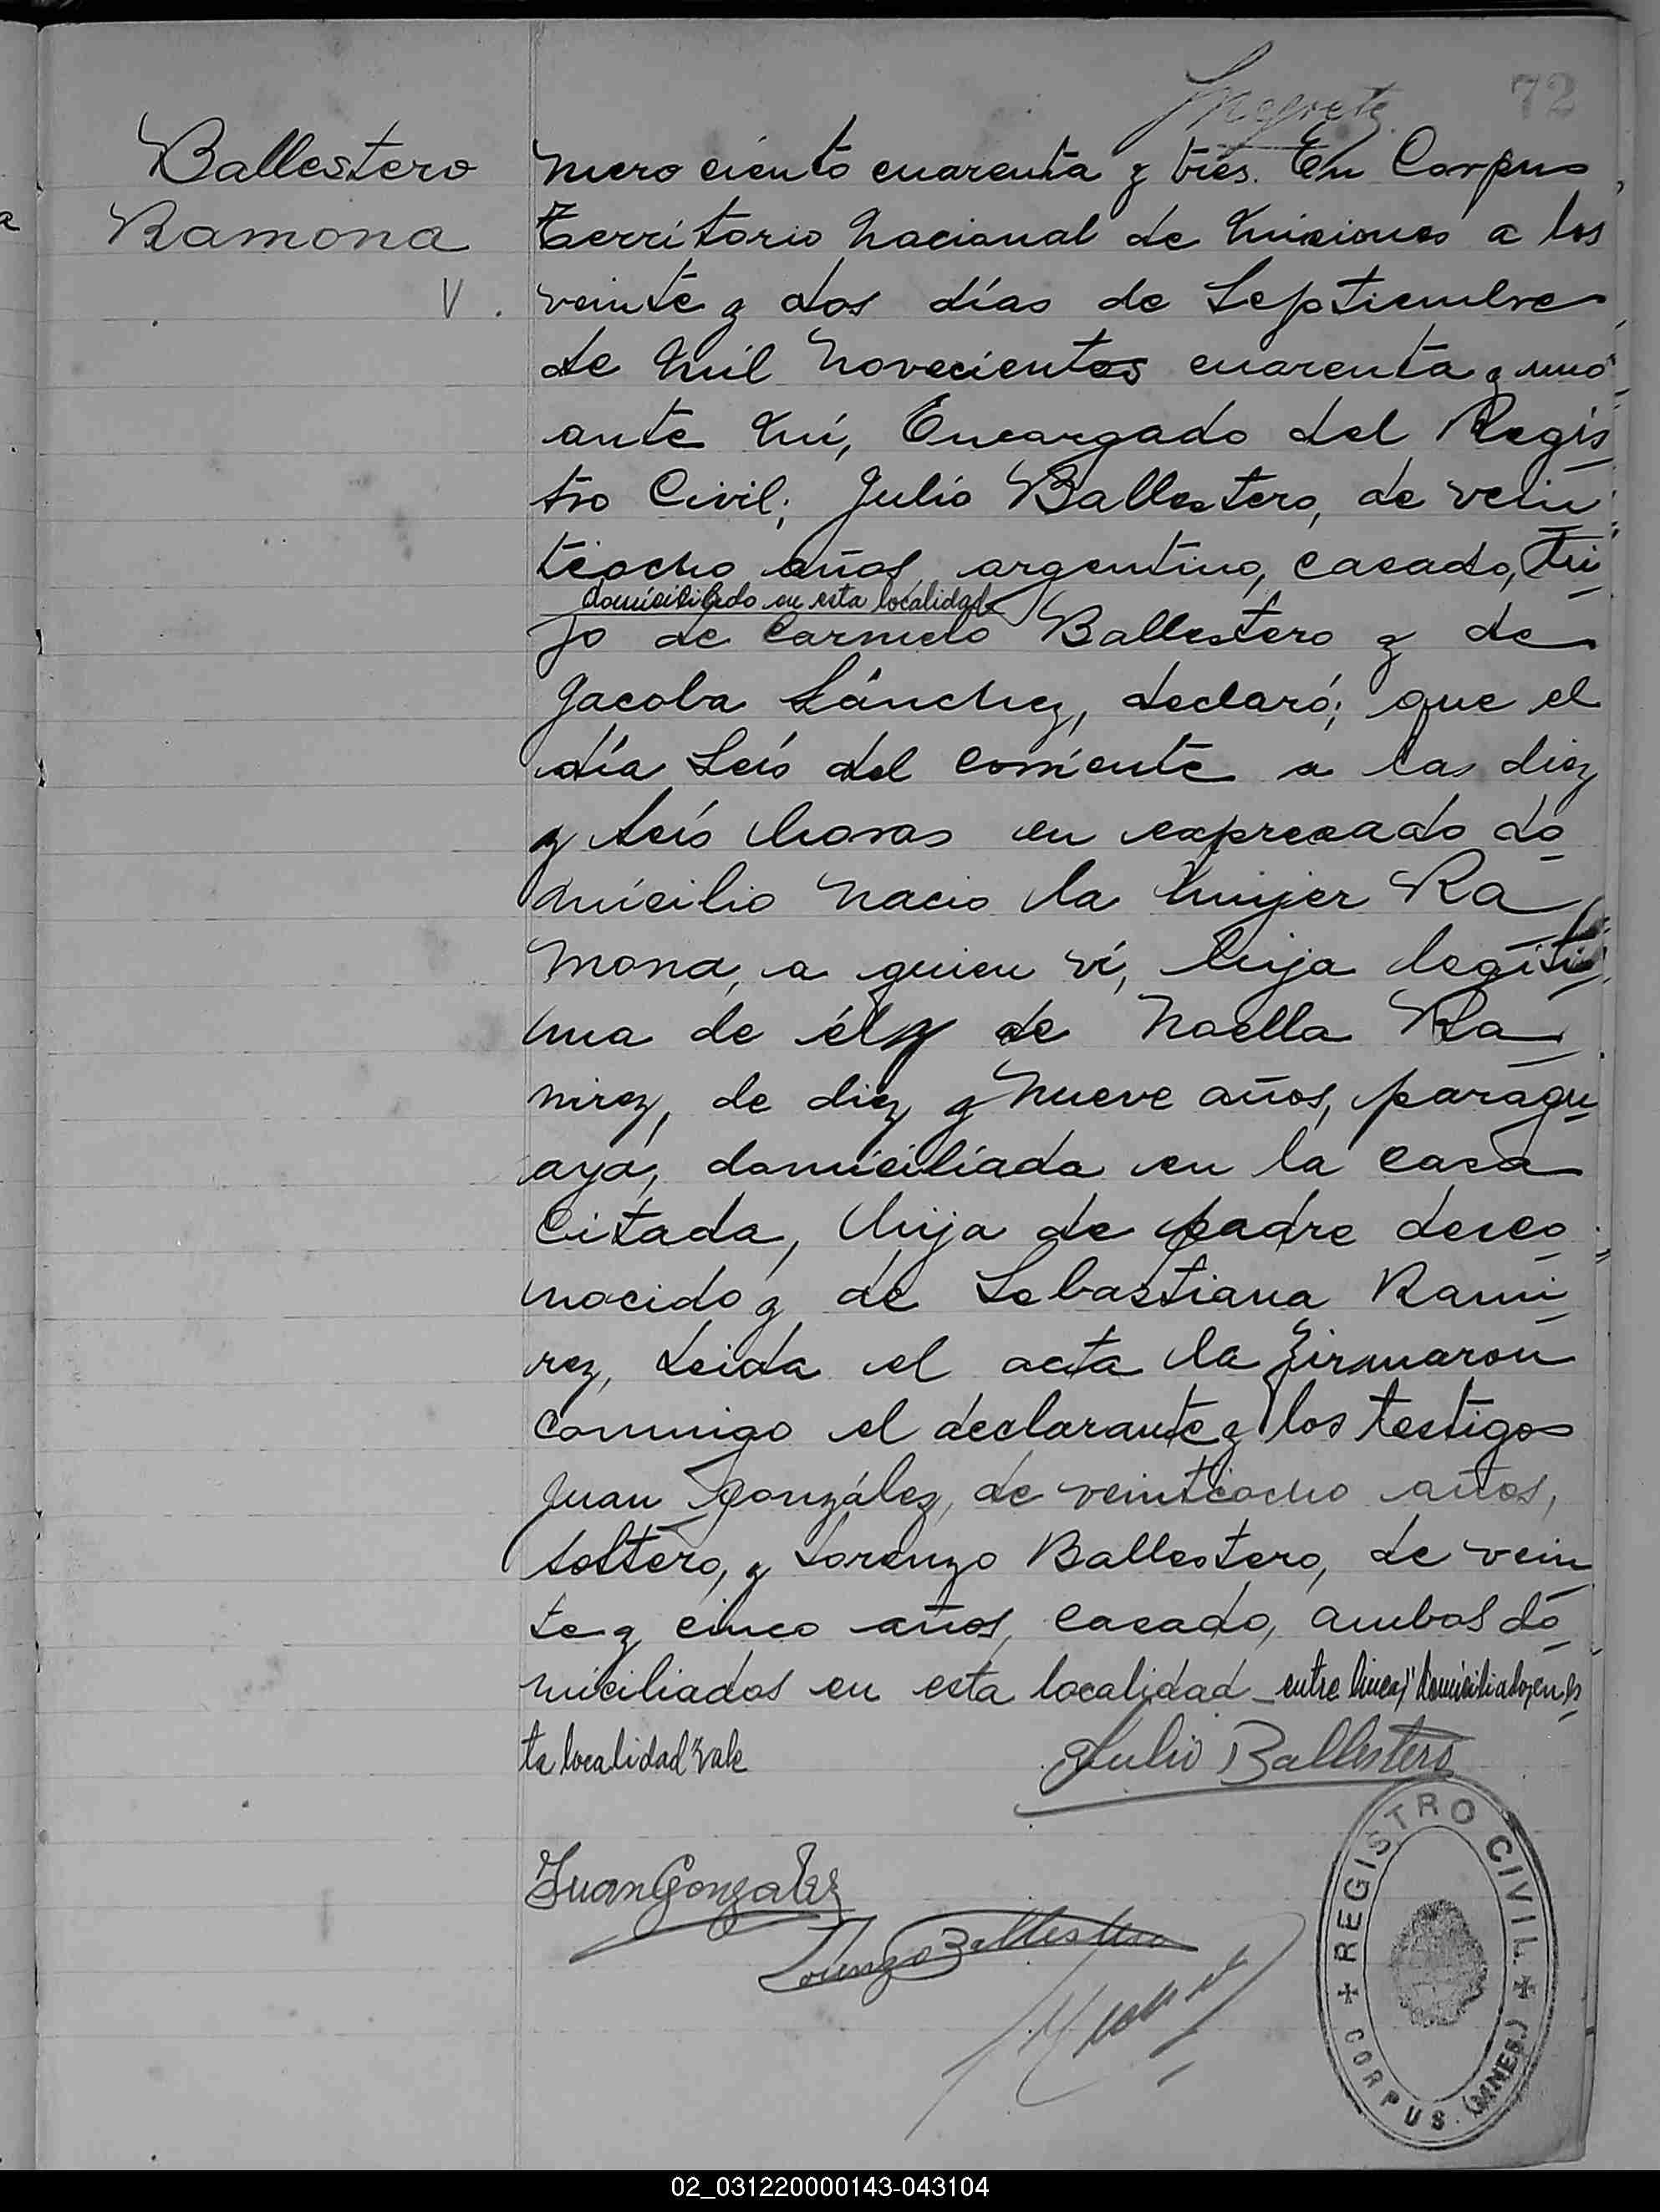 72
Ballestero
Ramona
V.
mero ciento cuarenta y tres. En Corpus,
territorio Nacional de Misiones a los
veinte y dos días de Septiembre
de Mil Novecientos cuarenta y uno
ante Mí, Encargado del Regis
tro Civil; Julio Ballestero, de vein
tiocho años, argentino, casado, hi
domiciliado en esta localidad
jo de Carmelo Ballestero y de
Jacoba Sánchez, declaró; que el
día Seis del corriente a las diez
y seis horas en expresado do
micilio nacio la mujer Ra
mona, a quien ví, hija legiti
ma de él y de Noella Ra
mirez, de diez y nueve años, paragu
aya, domiciliada en la casa
citada, hija de padre desco
nocido y de Sebastiana Rami
rez, Leida el acta la firmaron
conmigo el declarante y los testigos
Juan González, de veintiocho años,
soltero, y Lorenzo Ballestero, de vein
te y cinco años, casado, ambos do
miciliados en esta localidad_entre lineas "domiciliado en es
ta localidad" vale
Julio Ballestero
Juan Gonzalez
Lorenzo Ballestero
REGISTRO CIVIL
CORPUS. (MNES.)
02_031220000143-043104